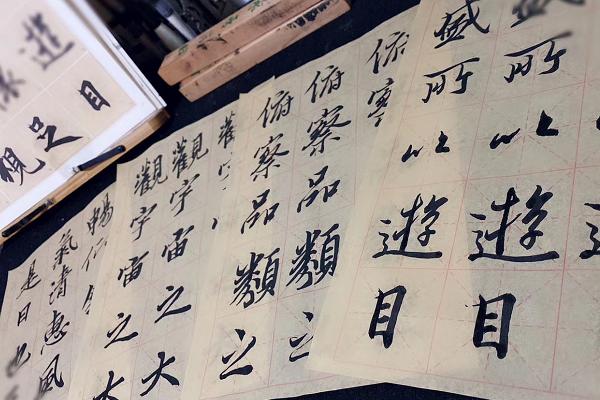 盛所以遊目
盛所以遊目
俯察
俯察品類之
俯察品類之
觀宇宙之大
觀宇宙之大
暢
氣清惠風
是日也
目
遊足
視